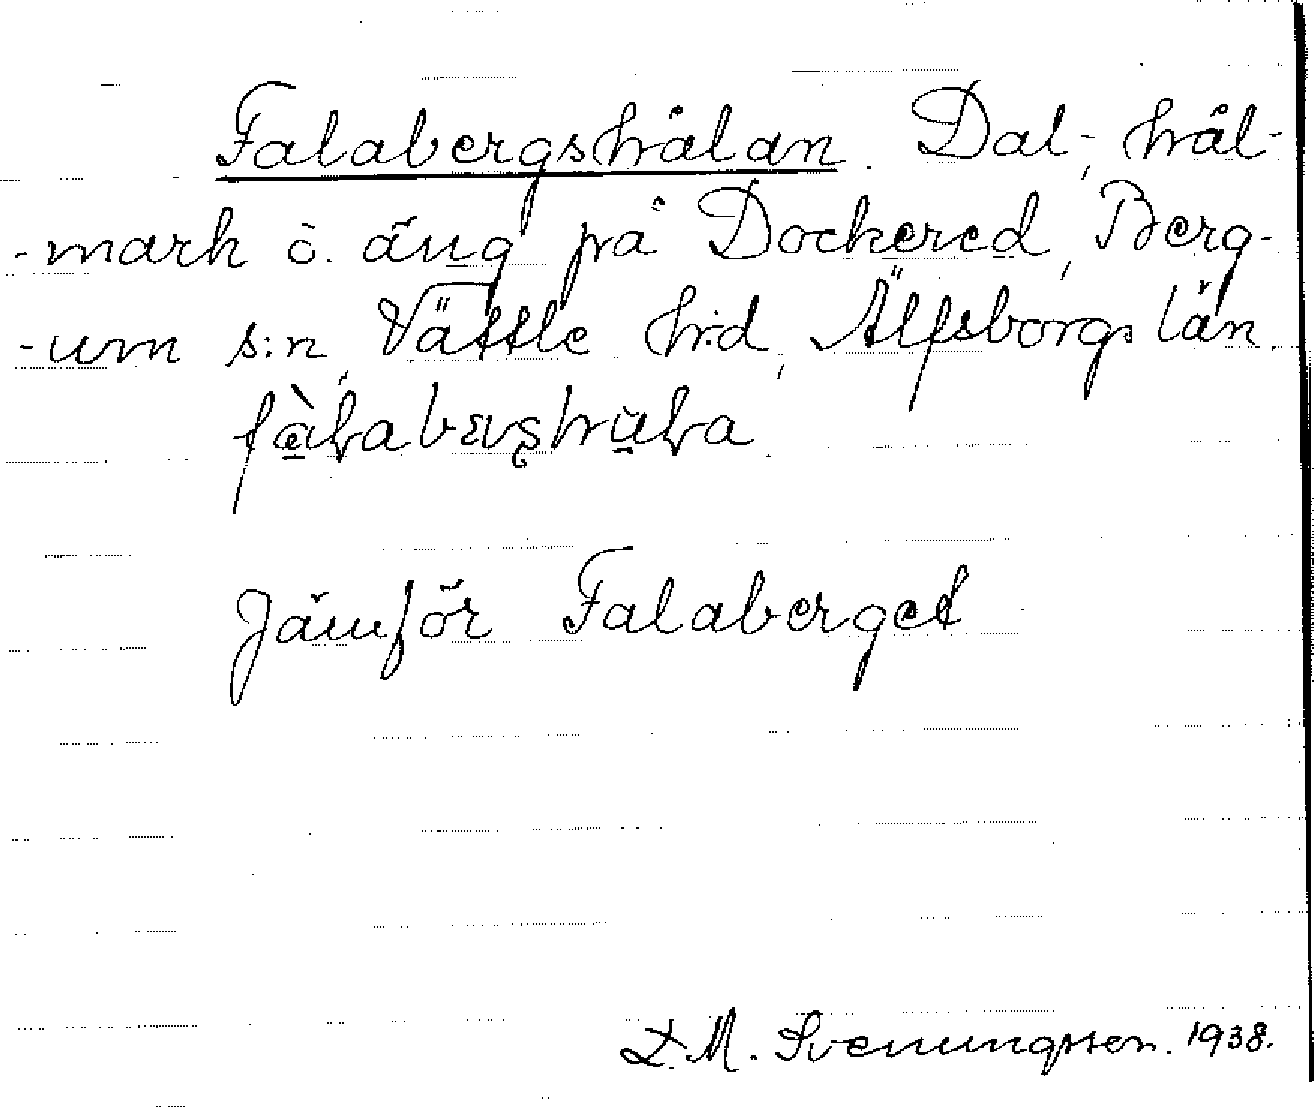 Falabergshålan. Dal-, hål-
-mark o. äng på Dockered, Berg-
-um s:n, Vättle h:d, Älfsborgs län.
Jämför Falaberget
L. M. Svenungsson. 1938.